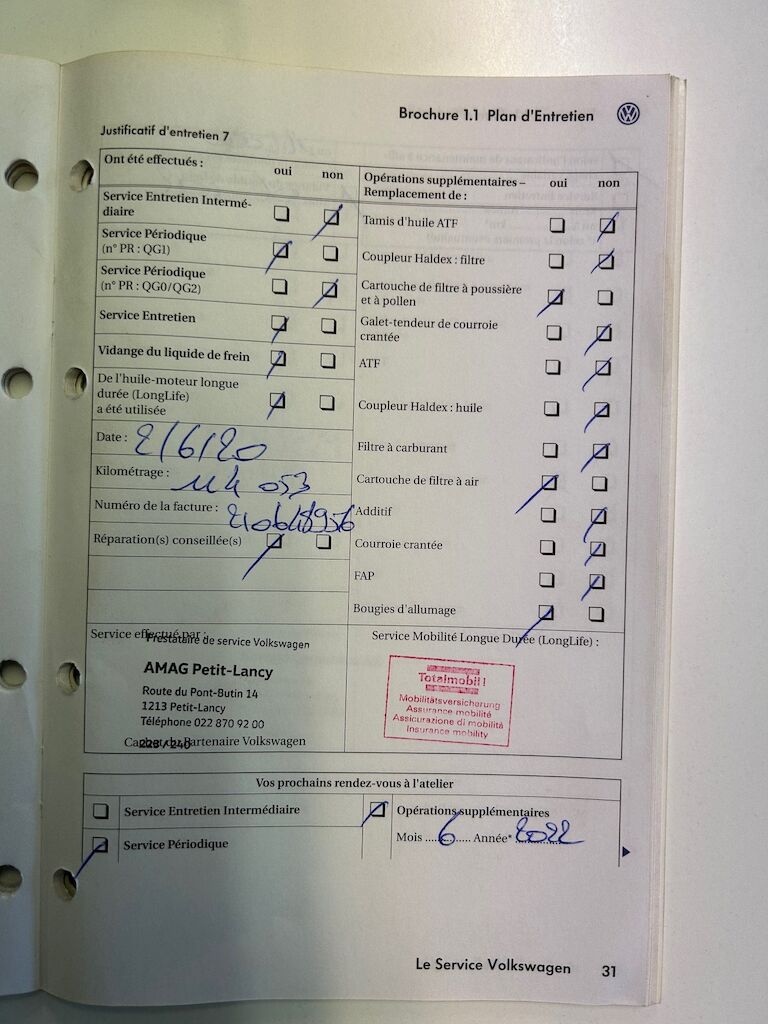 Brochure 1.1 Plan d'Entretien
Justificatif d'entretien 7
Ont été effectués :
oui non
Service Entretien Intermé-
diaire
Service Périodique
(n° PR : QG1)
Service Périodique
(n° PR : QG0/QG2)
Service Entretien
Vidange du liquide de frein
De l'huile-moteur longue
durée (LongLife)
a été utilisée
Date : 2/6/20
Kilométrage : 114 053
Numéro de la facture :
Réparation(s) conseillée(s)
Opérations supplémentaires –
Remplacement de :
oui non
Tamis d'huile ATF
Coupleur Haldex : filtre
Cartouche de filtre à poussière
et à pollen
Galet-tendeur de courroie
crantée
ATF
Coupleur Haldex : huile
Filtre à carburant
Cartouche de filtre à air
Additif
Courroie crantée
FAP
Bougies d'allumage
Service effectué par :
Prestataire de service Volkswagen
AMAG Petit-Lancy
Route du Pont-Butin 14
1213 Petit-Lancy
Téléphone 022 870 92 00
Partenaire Volkswagen
Service Mobilité Longue Durée (LongLife) :
Totalmobil!
Mobilitätsversicherung
Assurance mobilité
Assicurazione di mobilità
Insurance mobility
Vos prochains rendez-vous à l'atelier
Service Entretien Intermédiaire
Service Périodique
Opérations supplémentaires
Mois ....6..... Année* 2022
Le Service Volkswagen 31